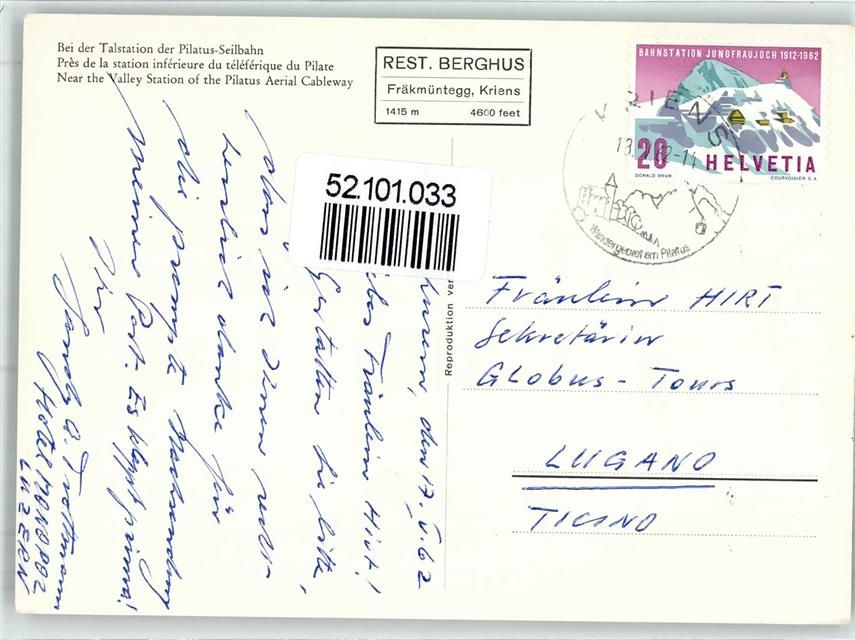 Bei der Talstation der Pilatus-Seilbahn
Près de la station inférieure du téléférique du Pilate
Near the Valley Station of the Pilatus Aerial Cableway
REST. BERGHUS
Fräkmüntegg, Kriens
1415 m 4600 feet
BAHNSTATION JUNGFRAUJOCH 1912-1962
20 HELVETIA
DONALD BRUN COURVOISIER S.A.
KRIENS
Wandergebiet am Pilatus
52.101.033
Reproduktion
Luzern, den 17. 6. 62
Fräulein Hirt!
Gestatten Sie bitte,
dass ich Ihnen recht
herzlich danke für
die prompte
meiner Post. Es klappt prima!
Ihr
Trottmann
Hotel MONOPOL
LUZERN
Fräulein HIRT
Sekretärin
GLOBUS - Tours
LUGANO
TICINO